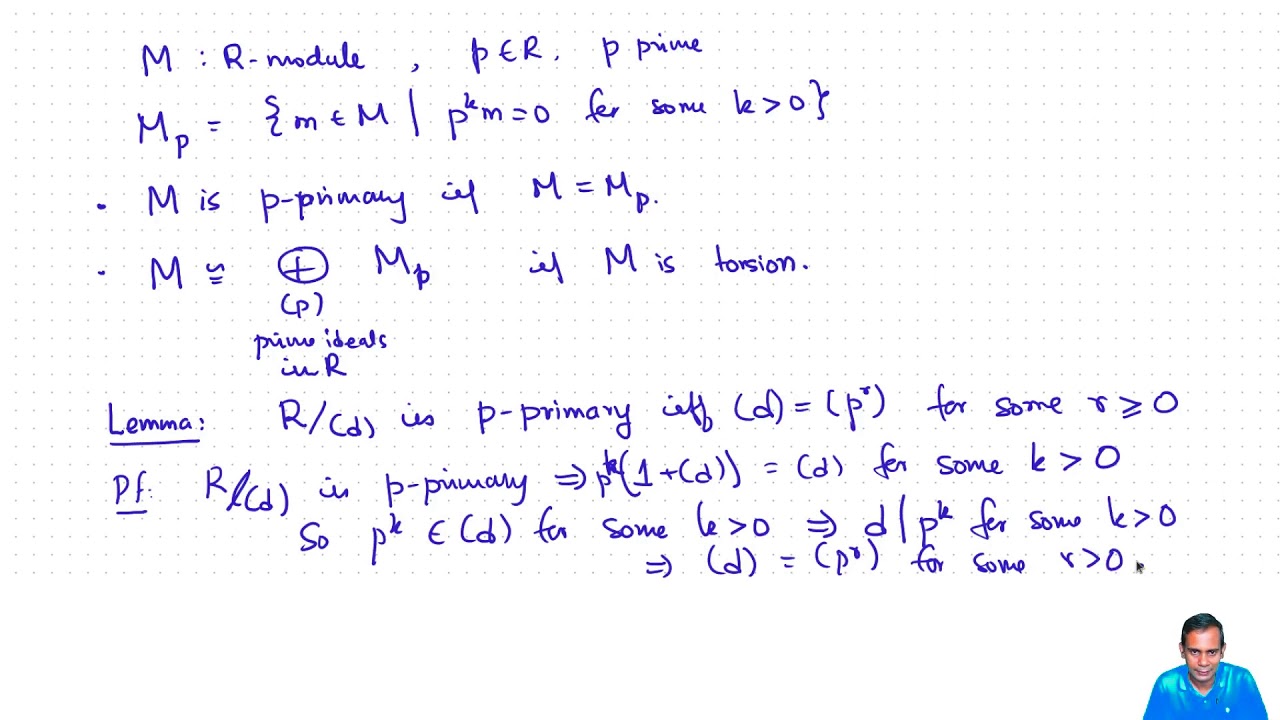 M : R-module , p ∈ R, p prime
M_p = {m ∈ M | p^k m = 0 for some k > 0}
· M is p-primary if M = M_p.
· M ≅ ⊕ M_p if M is torsion.
(p)
prime ideals
in R
Lemma: R/(d) is p-primary iff (d) = (p^r) for some r ≥ 0
Pf: R/(d) is p-primary ⇒ p^k(1+(d)) = (d) for some k > 0
So p^k ∈ (d) for some k > 0 ⇒ d | p^k for some k > 0
⇒ (d) = (p^r) for some r > 0.